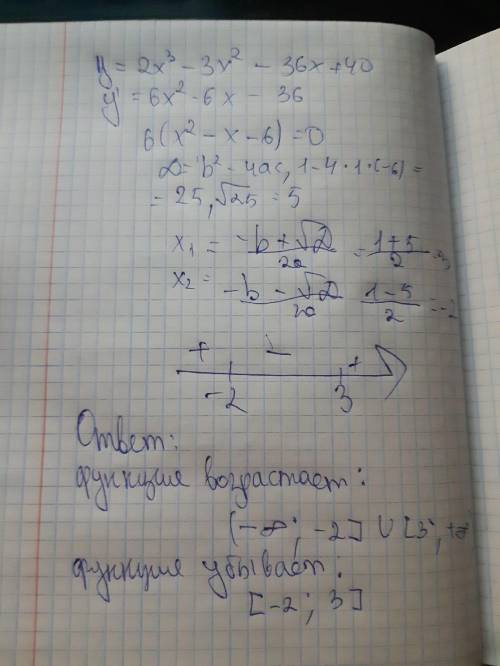 y = 2x³ - 3x² - 36x + 40
y' = 6x² - 6x - 36
6(x² - x - 6) = 0
D = b² - 4ac, 1 - 4 · 1 · (-6) =
= 25, √25 = 5
x₁ = (-b + √D)/2a = (1+5)/2 = 3
x₂ = (-b - √D)/2a (1-5)/2 = -2
+ - +
-2 3
Ответ:
функция возрастает:
(-∞; -2] ∪ [3; +∞
функция убывает:
[-2; 3]